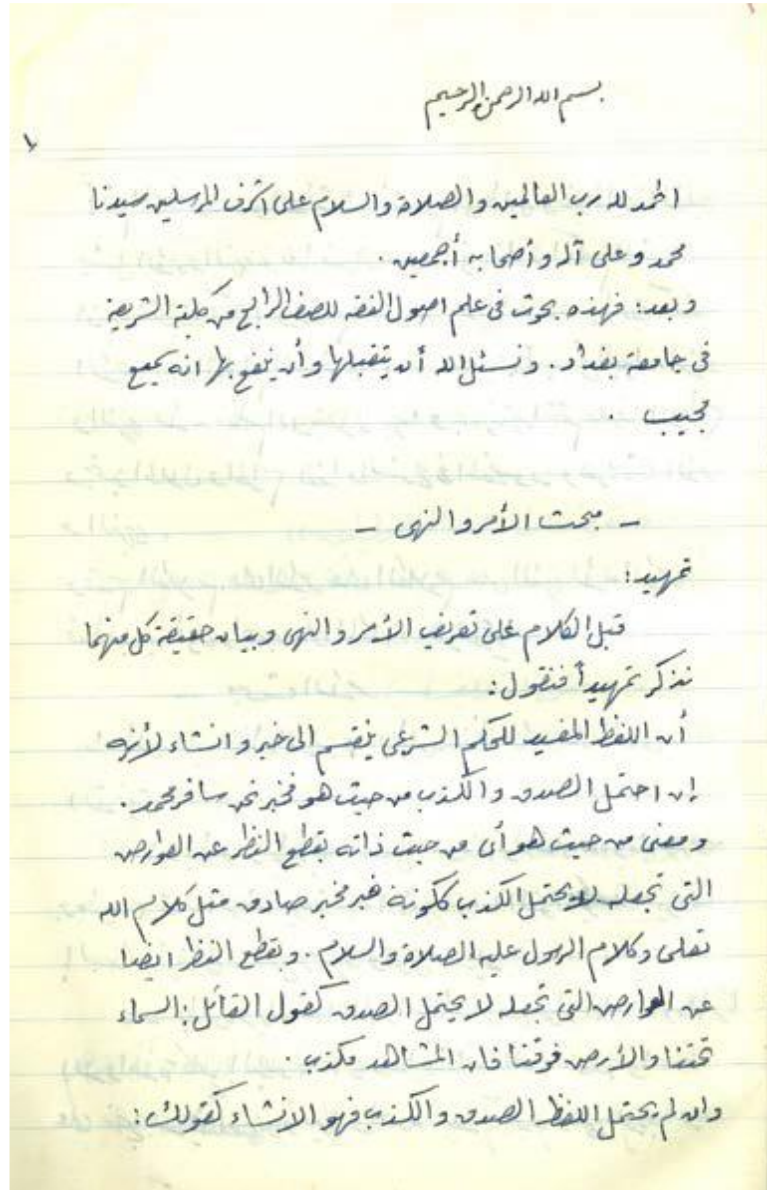 بسم الله الرحمن الرحيم
١
الحمد لله رب العالمين والصلاة والسلام على اشرف المرسلين سيدنا
محمد وعلى آله وأصحابه أجمعين .
وبعد : فهذه بحوث في علم اصول الفقه للصف الرابع من كلية الشريعة
في جامعة بغداد . ونسئل الله أن يتقبلها وأن ينفع بها انه سميع
مجيب .
- مبحث الأمر والنهي -
تمهيد :
قبل الكلام على تعريف الأمر والنهي وبيان حقيقة كل منهما
نذكر تمهيداً فنقول :
أن اللفظ المفيد للحكم الشرعي ينقسم الى خبر وانشاء لأنه
إن احتمل الصدق والكذب من حيث هو فخبر نحو سافر محمد .
ومعنى من حيث هو أي من حيث ذاته بقطع النظر عن العوارض
التي تجعله لا يحتمل الكذب ككونه خبر مخبر صادق مثل كلام الله
تعلى وكلام الرسول عليه الصلاة والسلام . وبقطع النظر ايضا
عن العوارض التي تجعله لا يحتمل الصدق كقول القائل : السماء
تحتنا والأرض فوقنا فان المشاهد مكذب .
وان لم يحتمل اللفظ الصدق والكذب فهو الانشاء كقولك :